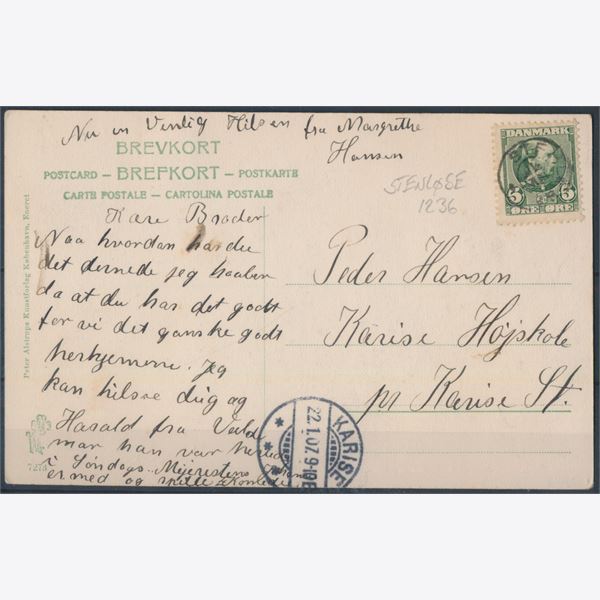 Nu en Venlig Hilsen
fra Margrethe
Hansen
BREVKORT
POSTCARD – BREFKORT – POSTKARTE
CARTE POSTALE – CARTOLINA POSTALE
Kære Broder
Naa hvordan har du
det dernede jeg haaber
da at du har det godt
for vi det ganske godt
herhjemme. Jeg
kan hilsve dig og
Harald fra Vald
mar han var
i Søndags. Mejeristens
er med og spille
STENLØSE
1236
DANMARK
5 5
ØRE ØRE
Peder Hansen
Karise Højskole
pr Karise St.
KARISE
22.1.07. 9-10E
Peter Alstrups Kunstforlag København, Eneret
7273